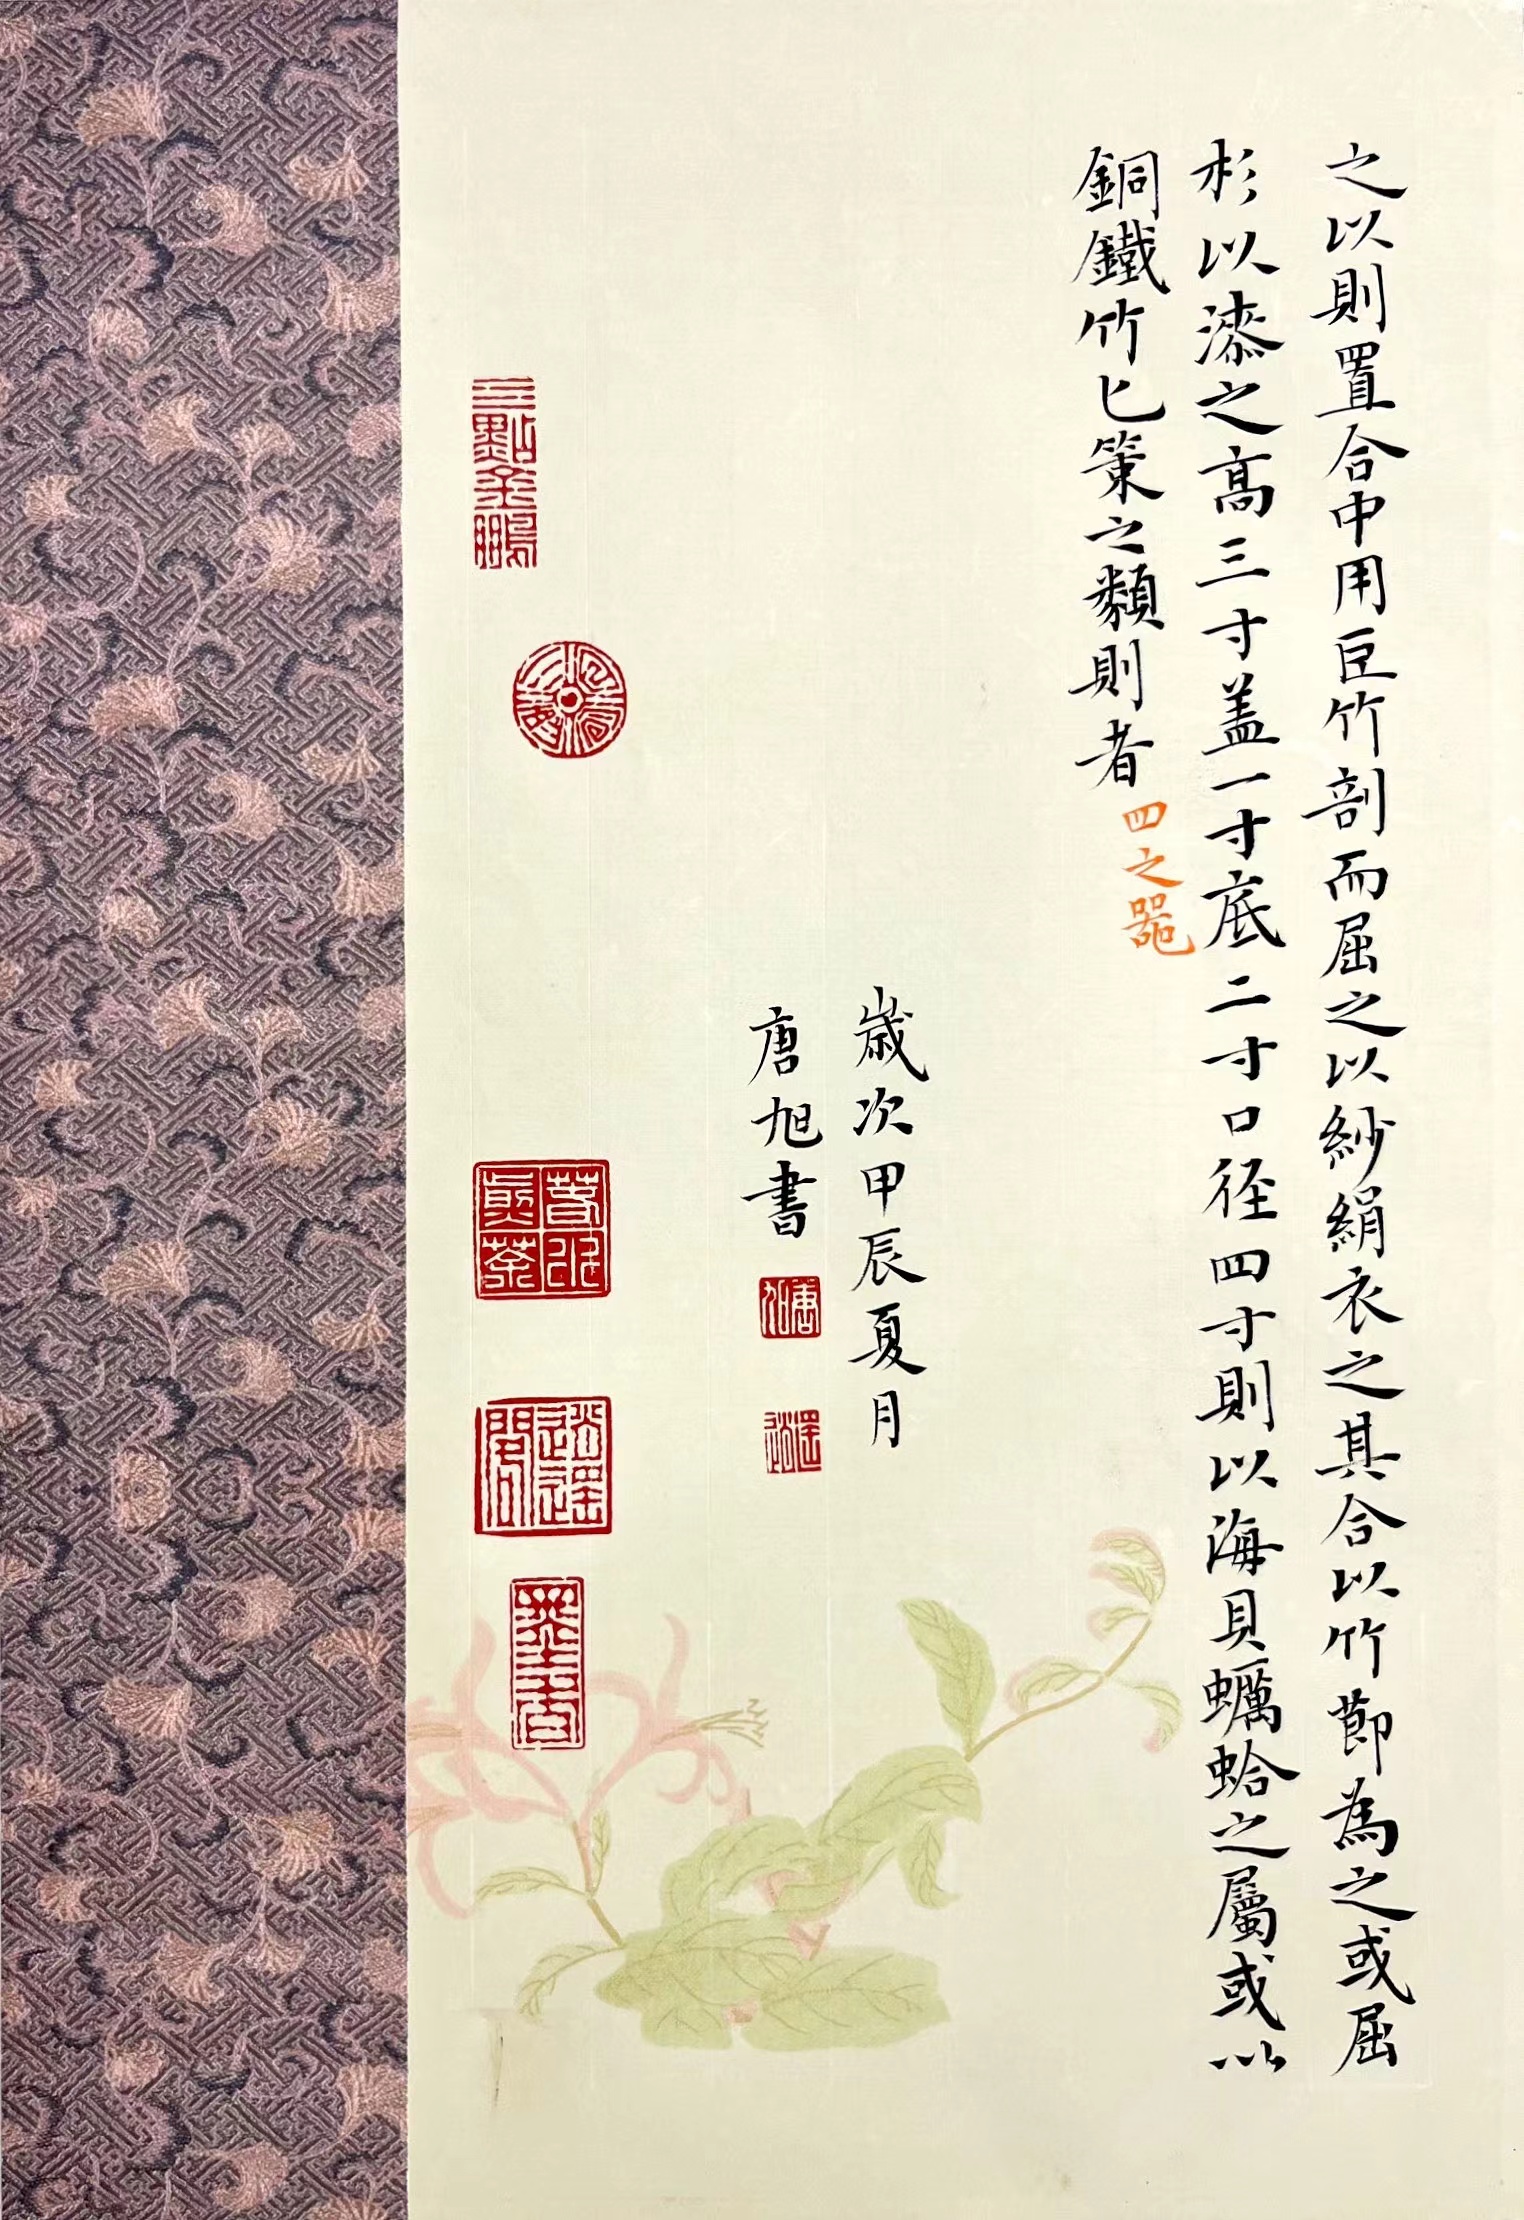 之以則置合中用巨竹剖而屈之以紗絹衣之其合以竹節為之或屈
杉以漆之高三寸盖一寸底二寸口径四寸則以海貝蠣蛤之屬或以
銅鐵竹匕策之類則者
四之器
歲次甲辰夏月
唐旭書
唐旭